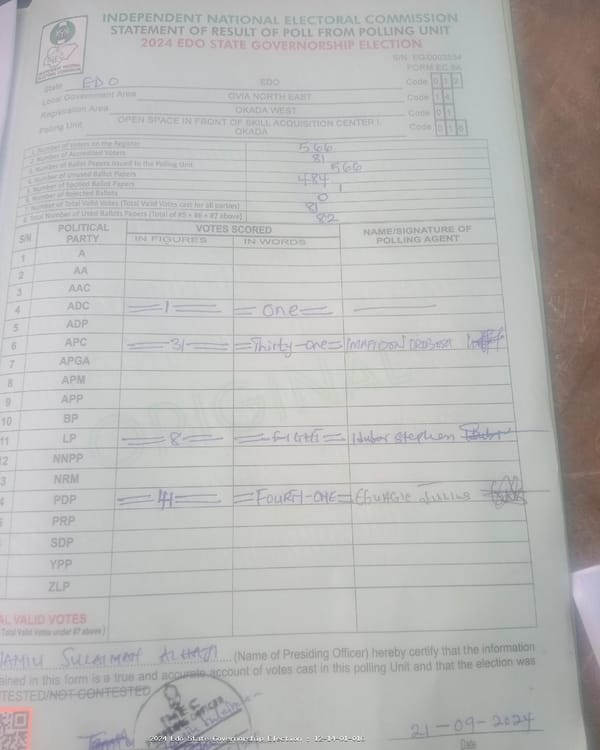 INDEPENDENT NATIONAL ELECTORAL COMMISSION
STATEMENT OF RESULT OF POLL FROM POLLING UNIT
2024 EDO STATE GOVERNORSHIP ELECTION
FORM EC 8A
State EDO EDO Code 0 1 2
Local Government Area OVIA NORTH EAST Code 1 4
Registration Area OKADA WEST Code 0 1
Polling Unit OPEN SPACE IN FRONT OF SKILL ACQUISITION CENTER I, OKADA Code 0 1 0
1. Number of Voters on the Register 566
2. Number of Accredited Voters 81
3. Number of Ballot Papers Issued to the Polling Unit 566
4. Number of Unused Ballot Papers 484
5. Number of Spoiled Ballot Papers 1
6. Number of Rejected Ballots 0
7. Number of Total Valid Votes (Total Valid Votes cast for all parties) 81
8. Total Number of Used Ballots Papers (Total of #5 + #6 + #7 above) 82
S/N POLITICAL PARTY VOTES SCORED NAME/SIGNATURE OF POLLING AGENT
IN FIGURES IN WORDS
1 A
2 AA
3 AAC
4 ADC 1 One
5 ADP
6 APC 31 Thirty-one
7 APGA
8 APM
9 APP
10 BP
11 LP 8 EIGHT Stephen
12 NNPP
3 NRM
4 PDP 41 FOURTH-ONE JULIUS
PRP
SDP
YPP
ZLP
AL VALID VOTES
(Total Valid Votes under #7 above)
SULAIMAN ALHAJI (Name of Presiding Officer) hereby certify that the information
ained in this form is a true and accurate account of votes cast in this polling Unit and that the election was
TESTED/NOT CONTESTED
21-09-2024
2024 Edo State Governorship Election : 12-14-01-010
Date